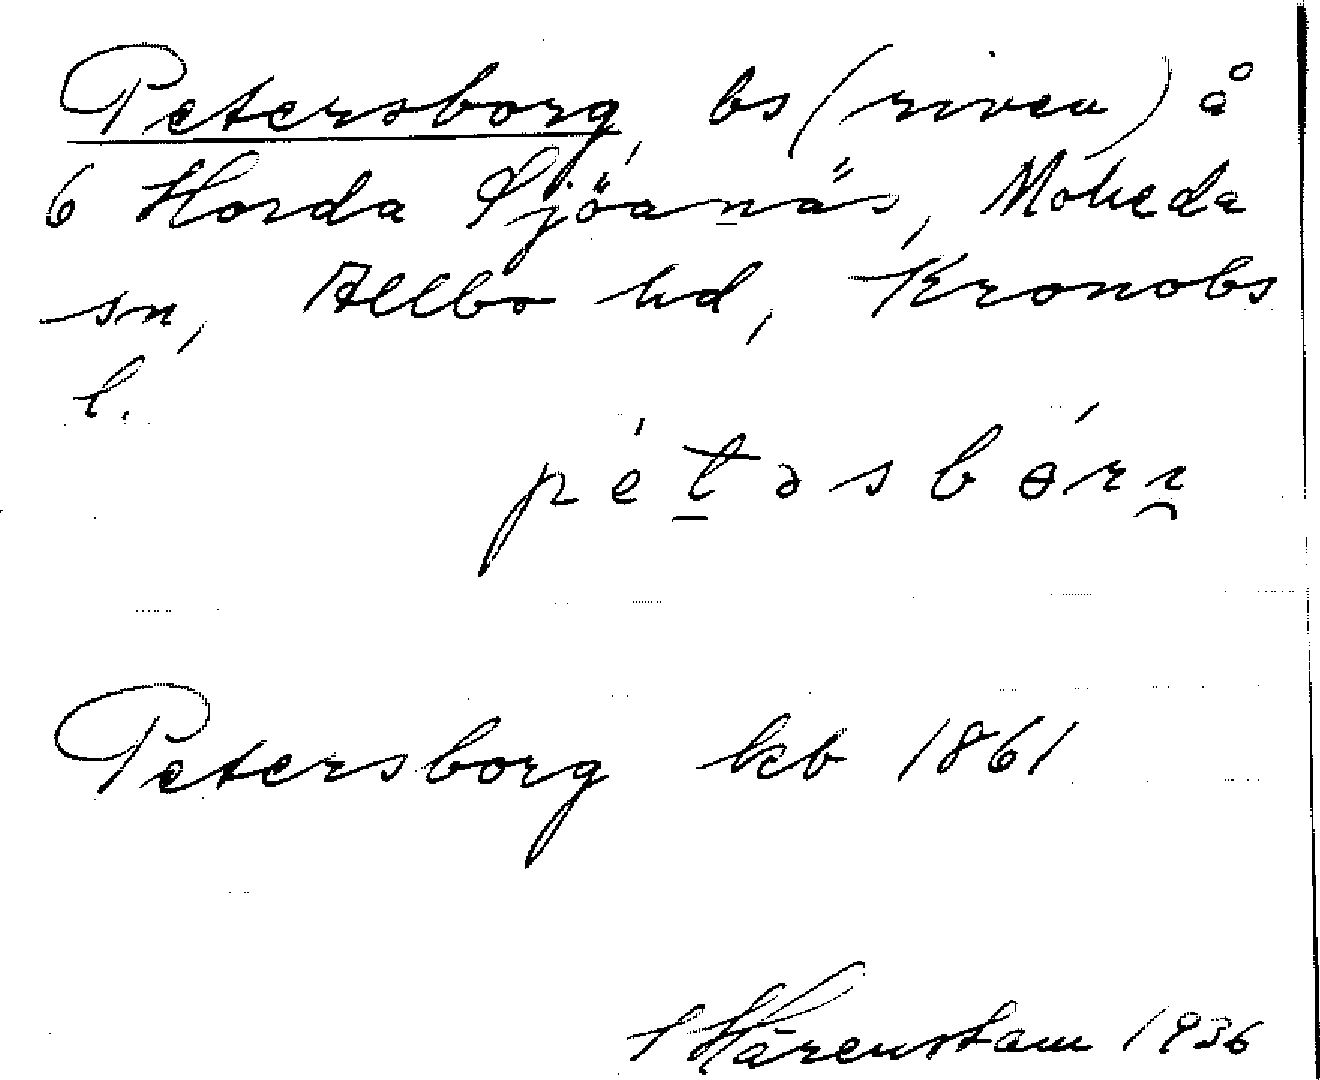 Petersborg, bs (riven) å
6 Horda Sjöanäs, Moheda
sn, Allbo hd, Kronobs
l.
pétəsbɵ́rɪ
Petersborg kb 1861
Härenstam 1936